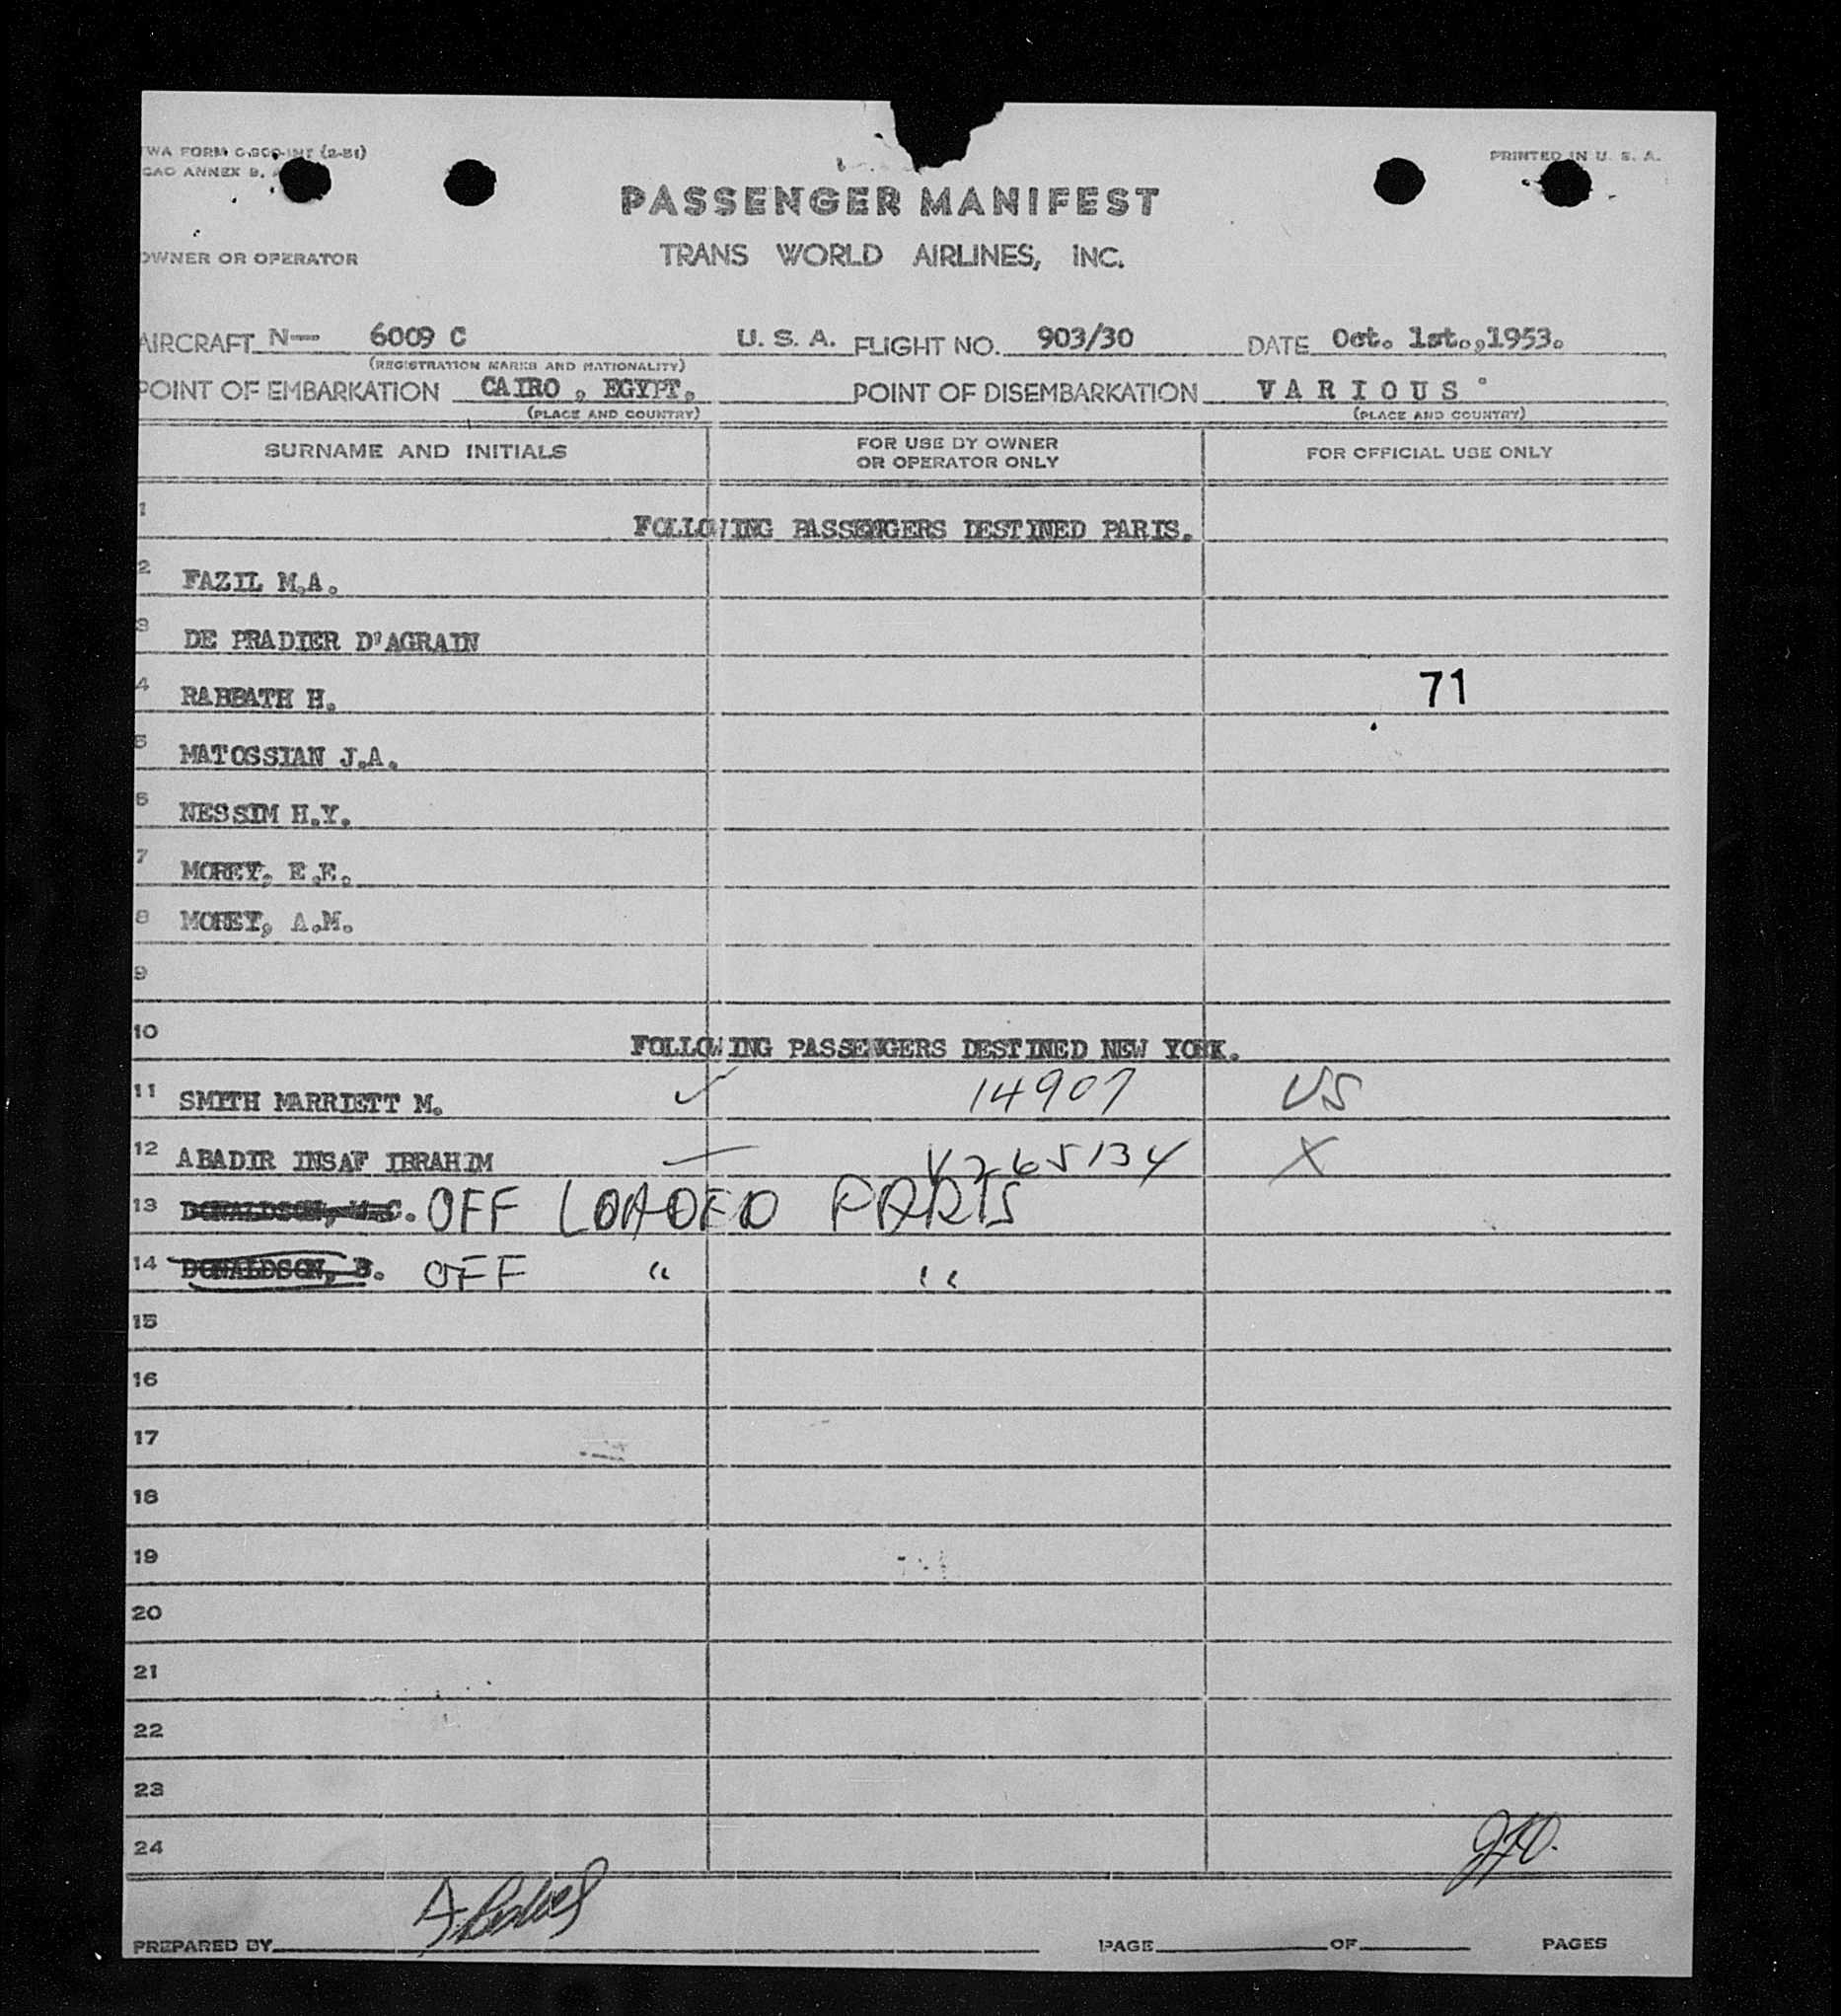 TWA FORM
PRINTED IN U. S. A.
ICAO ANNEX 9,
PASSENGER MANIFEST
OWNER OR OPERATOR
TRANS WORLD AIRLINES, INC.
AIRCRAFT N— 6009 C U. S. A. FLIGHT NO. 903/30 DATE Oct. 1st.,1953.
(REGISTRATION MARKS AND NATIONALITY)
POINT OF EMBARKATION CAIRO , EGYPT. POINT OF DISEMBARKATION VARIOUS
(PLACE AND COUNTRY) (PLACE AND COUNTRY)
SURNAME AND INITIALS FOR USE BY OWNER OR OPERATOR ONLY FOR OFFICIAL USE ONLY
1 FOLLOWING PASSENGERS DESTINED PARIS.
2 FAZIL M.A.
3 DE PRADIER D'AGRAIN
4 RABBATH H. 71
5 MATOSSIAN J.A.
6 NESSIM H.Y.
7 MOREY, E.E.
8 MOREY, A.M.
9
10 FOLLOWING PASSENGERS DESTINED NEW YORK.
11 SMITH MARRIETT M. ✓ 14907 US
12 ABADIR INSAF IBRAHIM — V265134 X
13 DONALDSON, C. OFF LOADED PARIS
14 DONALDSON, B. OFF " "
15
16
17
18
19
20
21
22
23
24
PREPARED BY PAGE OF PAGES